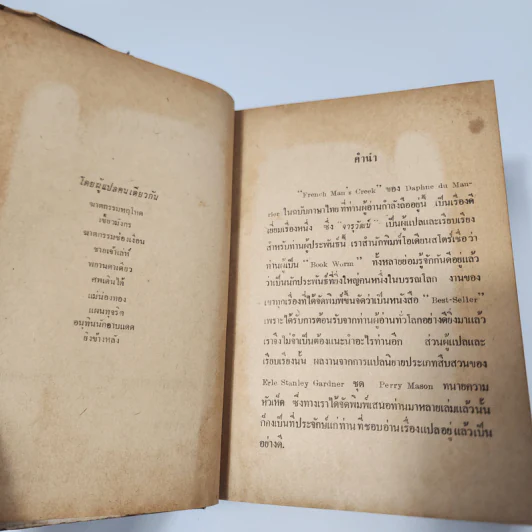 โดยผู้แปลคนเดียวกัน
ฆาตกรรมพฤโหด
เขี้ยวมังกร
ฆาตกรรมซ่อนเงื่อน
ชายเจ้าเล่ห์
พยานตาเดียว
ศพเดินได้
แม่น้องทอง
แผนทุจริต
อนุทินนักอาบแดด
ยิงข้างหลัง
คำนำ
"French Man's Creek" ของ Daphne du Mau-
rier ในฉบับภาษาไทย ที่ท่านผู้อ่านกำลังถืออยู่นี้ เป็นเรื่องดี
เยี่ยมเรื่องหนึ่ง ซึ่ง "จารุวัฒน์" เป็นผู้แปลและเรียบเรียง
สำหรับท่านผู้ประพันธ์นั้น เราสำนักพิมพ์โอเดียนสโตร์เชื่อว่า
ท่านผู้เป็น "Book Worm" ทั้งหลายย่อมรู้จักกันดีอยู่แล้ว
ว่าเป็นนักประพันธ์ที่ยิ่งใหญ่คนหนึ่งในบรรณโลก งานของ
เขาทุกเรื่องที่ได้จัดพิมพ์ขึ้นจัดว่าเป็นหนังสือ "Best-Seller"
เพราะได้รับการต้อนรับจากท่านผู้อ่านทั่วโลกอย่างดียิ่งมาแล้ว
เราจึงไม่จำเป็นต้องแนะนำอะไรท่านอีก ส่วนผู้แปลและ
เรียบเรียงนั้น ผลงานจากการแปลนิยายประเภทสืบสวนของ
Erle Stanley Gardner ชุด Perry Mason ทนายความ
หัวเห็ด ซึ่งทางเราได้จัดพิมพ์เสนอท่านมาหลายเล่มแล้วนั้น
ก็คงเป็นที่ประจักษ์แก่ท่านที่ชอบอ่านเรื่องแปลอยู่แล้วเป็น
อย่างดี.